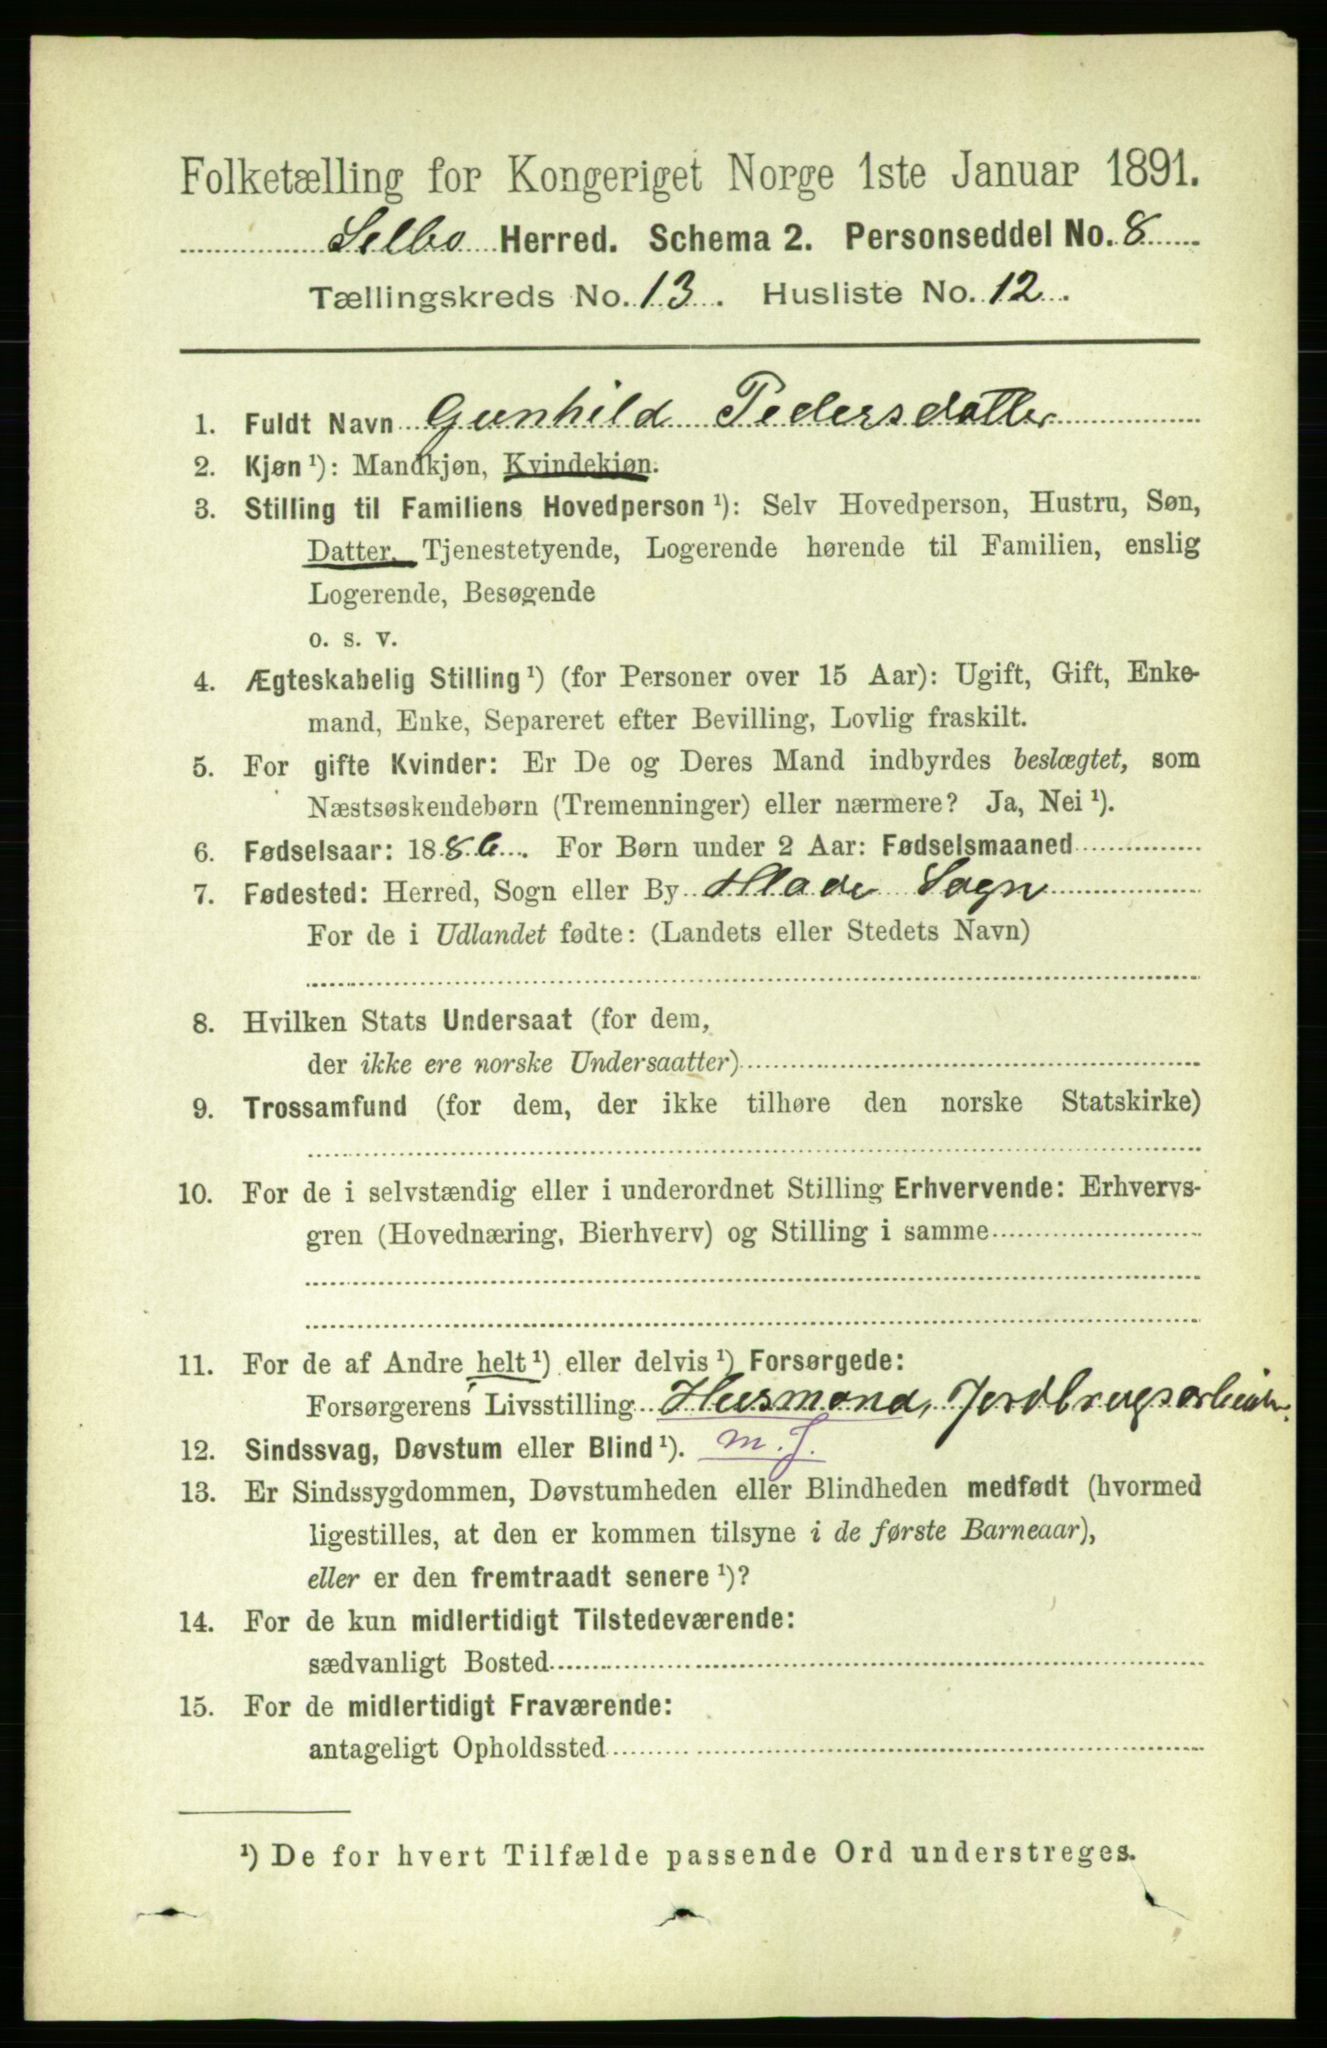 Folketælling for Kongeriget Norge 1ste Januar 1891.
Selbo Herred. Schema 2. Personseddel No. 8
Tællingskreds No. 13. Husliste No. 12.
1. Fuldt Navn Gunhild Pedersdatter
2. Kjøn ¹): Mandkjøn, Kvindekjøn.
3. Stilling til Familiens Hovedperson ¹): Selv Hovedperson, Hustru, Søn,
Datter, Tjenestetyende, Logerende hørende til Familien, enslig
Logerende, Besøgende
o. s. v.
4. Ægteskabelig Stilling ¹) (for Personer over 15 Aar): Ugift, Gift, Enke-
mand, Enke, Separeret efter Bevilling, Lovlig fraskilt.
5. For gifte Kvinder: Er De og Deres Mand indbyrdes beslægtet, som
Næstsøskendebørn (Tremenninger) eller nærmere? Ja, Nei ¹).
6. Fødselsaar: 1886. For Børn under 2 Aar: Fødselsmaaned
7. Fødested: Herred, Sogn eller By Hlade Sogn
For de i Udlandet fødte: (Landets eller Stedets Navn)
8. Hvilken Stats Undersaat (for dem,
der ikke ere norske Undersaatter)
9. Trossamfund (for dem, der ikke tilhøre den norske Statskirke)
10. For de i selvstændig eller i underordnet Stilling Erhvervende: Erhvervs-
gren (Hovednæring, Bierhverv) og Stilling i samme
11. For de af Andre helt ¹) eller delvis ¹) Forsørgede:
Forsørgerens Livsstilling Husmand, Jordbrugsarbeider.
12. Sindssvag, Døvstum eller Blind ¹). m. J.
13. Er Sindssygdommen, Døvstumheden eller Blindheden medfødt (hvormed
ligestilles, at den er kommen tilsyne i de første Barneaar),
eller er den fremtraadt senere ¹)?
14. For de kun midlertidigt Tilstedeværende:
sædvanligt Bosted
15. For de midlertidigt Fraværende:
antageligt Opholdssted
¹) De for hvert Tilfælde passende Ord understreges.